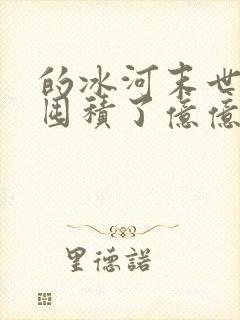 的冰河末世
囤積了億億
里德諾